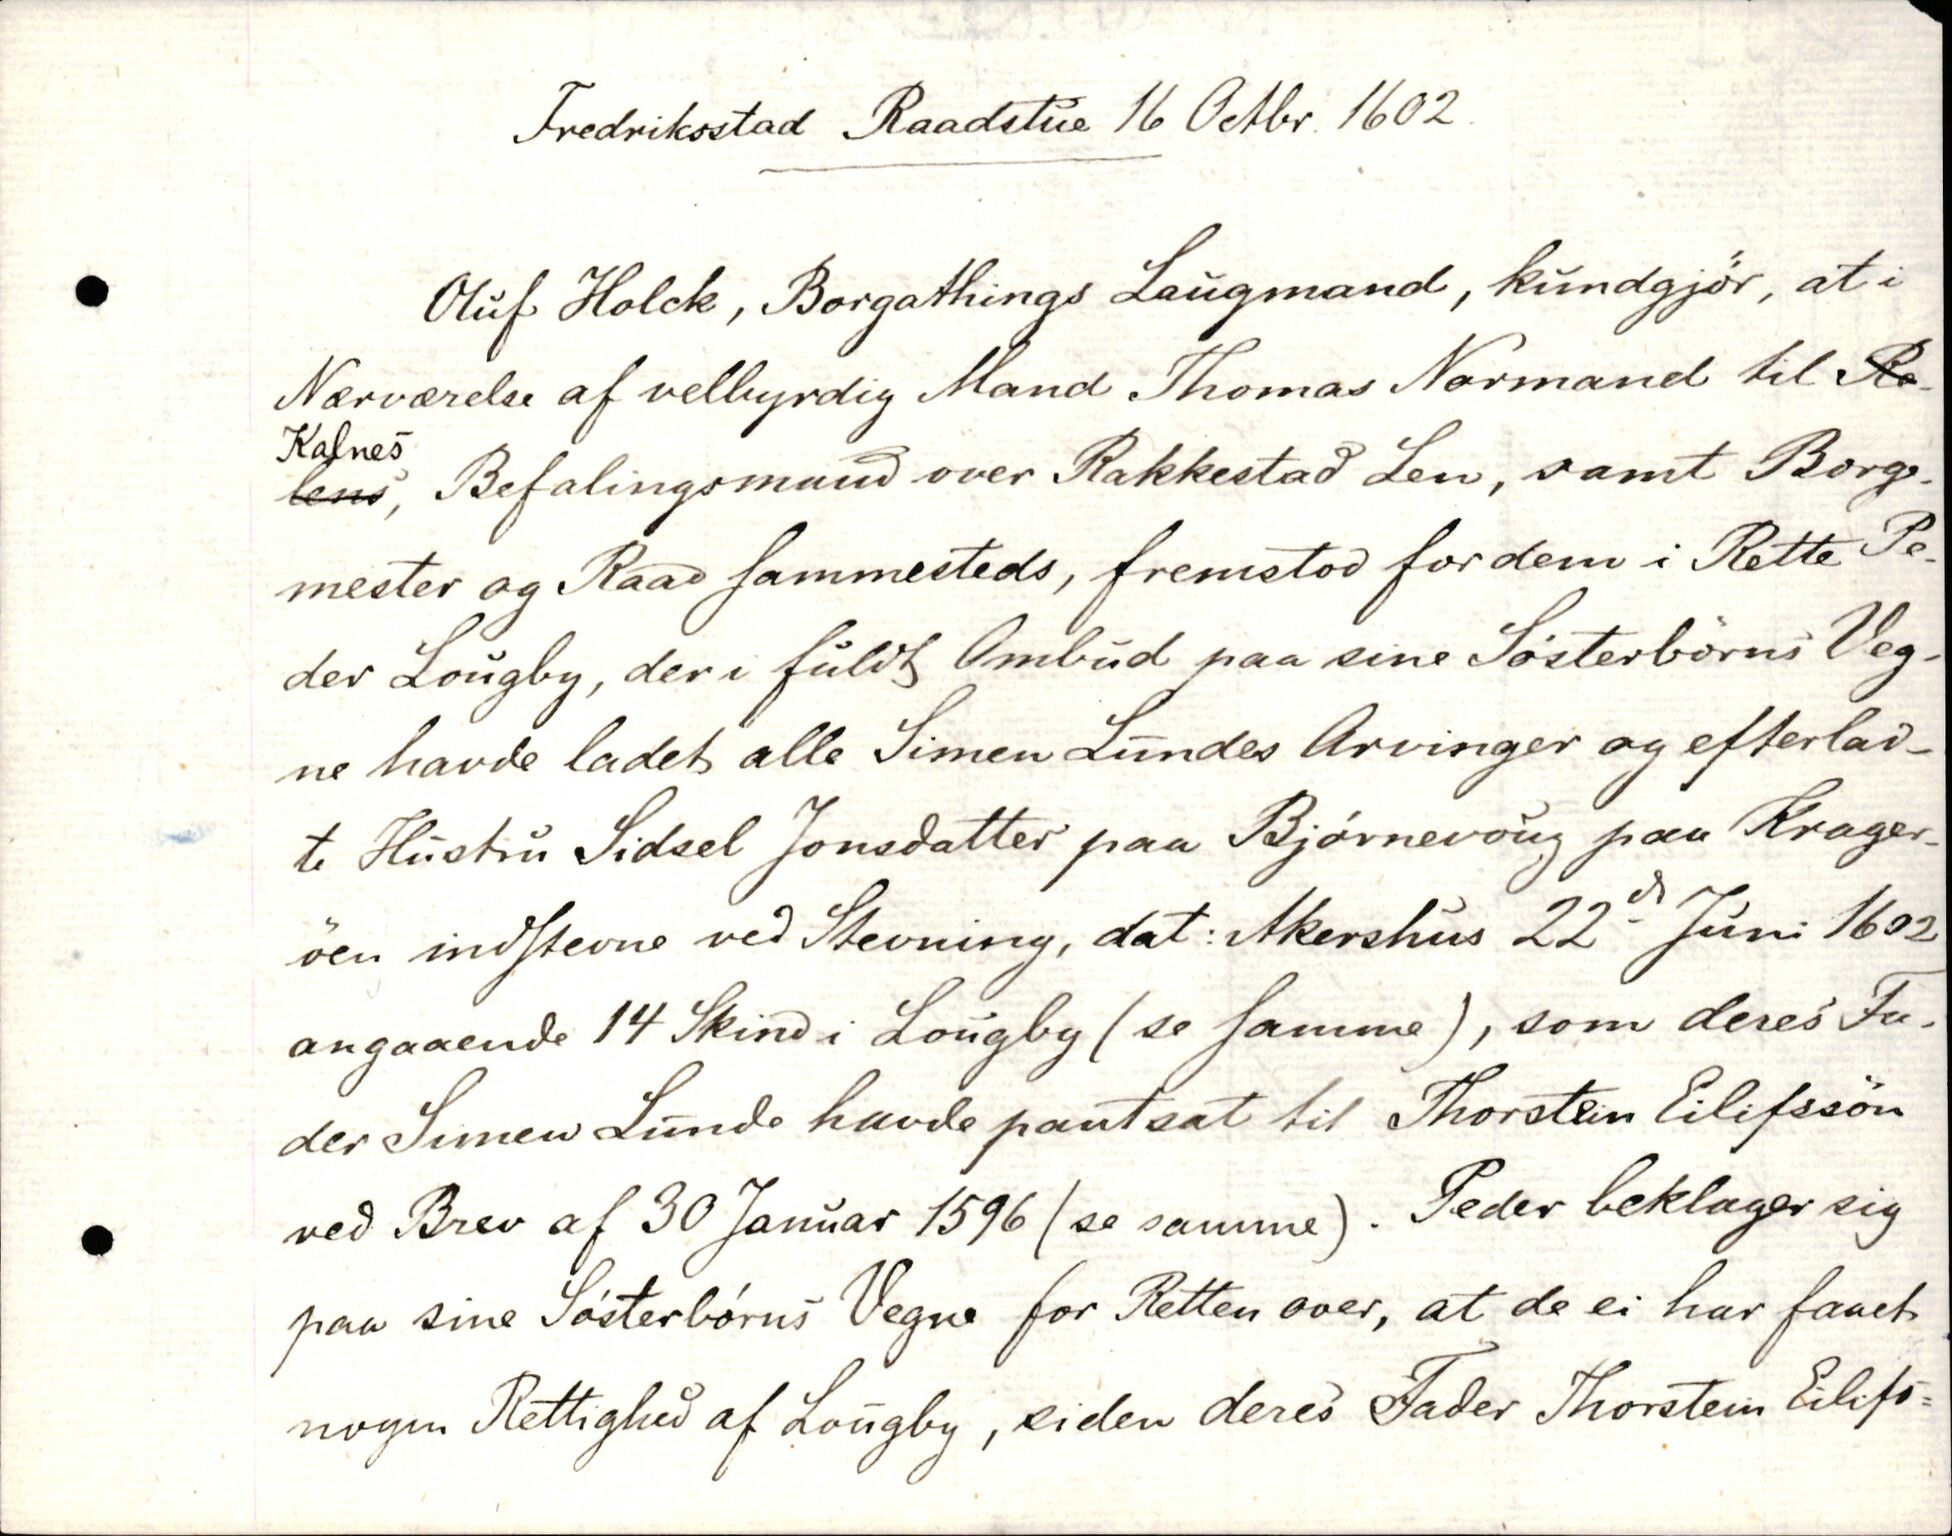 Fredriksstad Raadstue 16 Octbr. 1602.
Oluf Holck, Borgathings Laugmand, kundgjör, at i
Nærværelse af velbyrdig Mand Thomas Normand til Ro-
Kalnes
lens, Befalingsmand over Rakkestad Len, samt Borge-
mester og Raad sammesteds, fremstod for dem i Rette Pe-
der Lougby, der i fuldt Ombud paa sine Söster börns Veg-
ne havde ladet alle Simen Lundes Arvinger og efterlad-
te Hustru Sidsel Jonsdatter paa Bjórnevoug paa Krager-
öen indstevne ved Stevning, dat: Akershus 22d Juni 1602
angaaende 14 Skind i Lougby (se samme), som deres Fa-
der Simen Lunde havde pantsat til Thorstein Eilifssön
ved Brev af 30 Januar 1596 (se samme). Peder beklager sig
paa sine Sósterbórns Vegne for Retten over, at de ei har faaet
nogen Rettighed af Lougby, siden deres Fader Thorstein Eilifs=